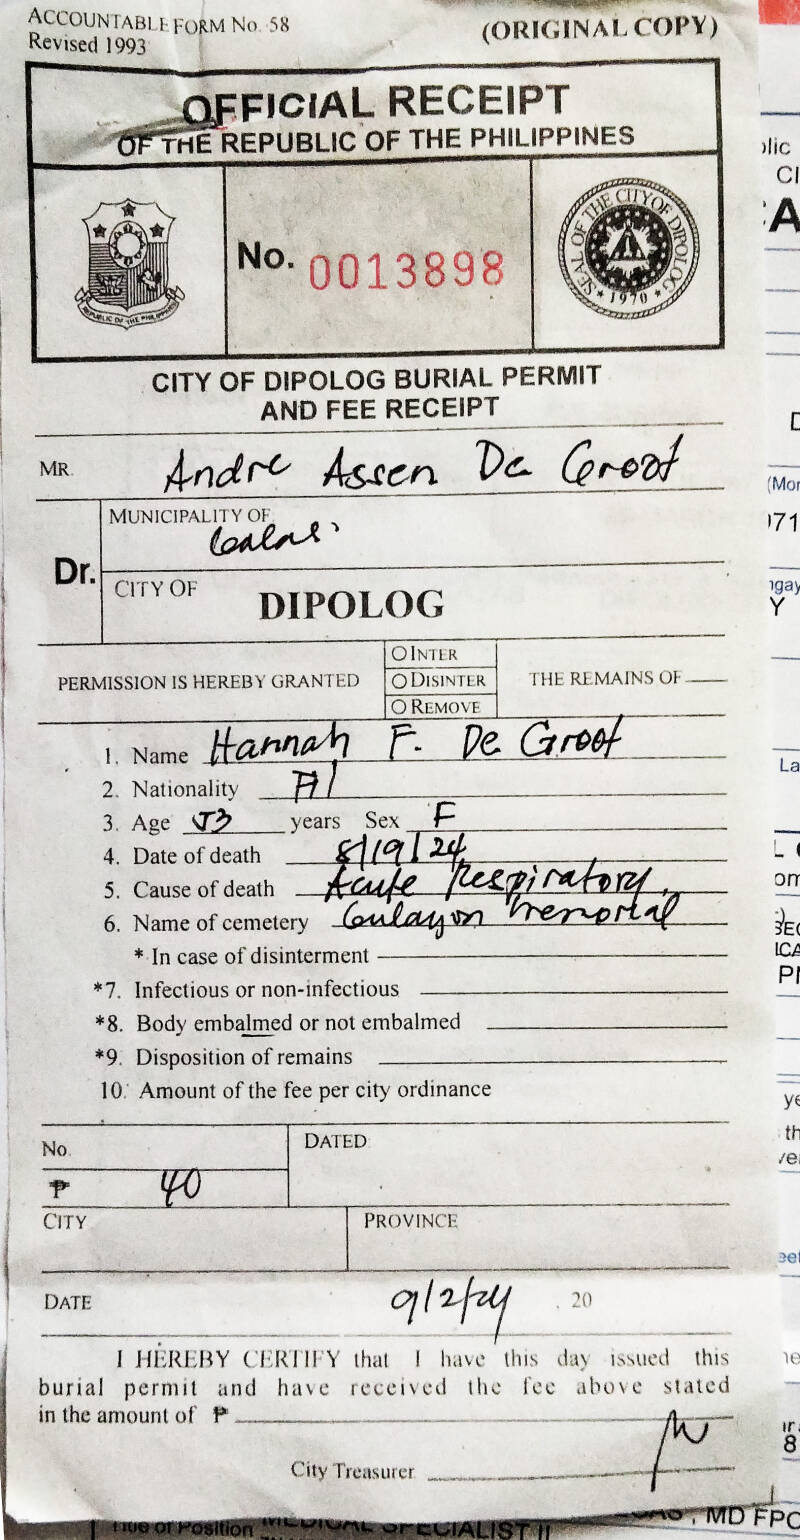 ACCOUNTABLE FORM No. 58
Revised 1993
(ORIGINAL COPY)
OFFICIAL RECEIPT
OF THE REPUBLIC OF THE PHILIPPINES
REPUBLIC OF THE PHILIPPINES
No. 0013898
SEAL OF THE CITY OF DIPOLOG
* 1970 *
CITY OF DIPOLOG BURIAL PERMIT
AND FEE RECEIPT
MR. Andre Assen De Groot
Dr.
MUNICIPALITY OF
CITY OF
DIPOLOG
PERMISSION IS HEREBY GRANTED
INTER
DISINTER
REMOVE
THE REMAINS OF
1. Name Hannah F. De Groot
2. Nationality
3. Age 53 years Sex F
4. Date of death 8/19/24
5. Cause of death Acute Respiratory
6. Name of cemetery Gulayon Memorial
* In case of disinterment
*7. Infectious or non-infectious
*8. Body embalmed or not embalmed
*9. Disposition of remains
10. Amount of the fee per city ordinance
No.
DATED
₱ 40
CITY
PROVINCE
DATE 9/2/24 , 20
I HEREBY CERTIFY that I have this day issued this
burial permit and have received the fee above stated
in the amount of ₱
City Treasurer
Title or Position MEDICAL SPECIALIST II
, MD FPO